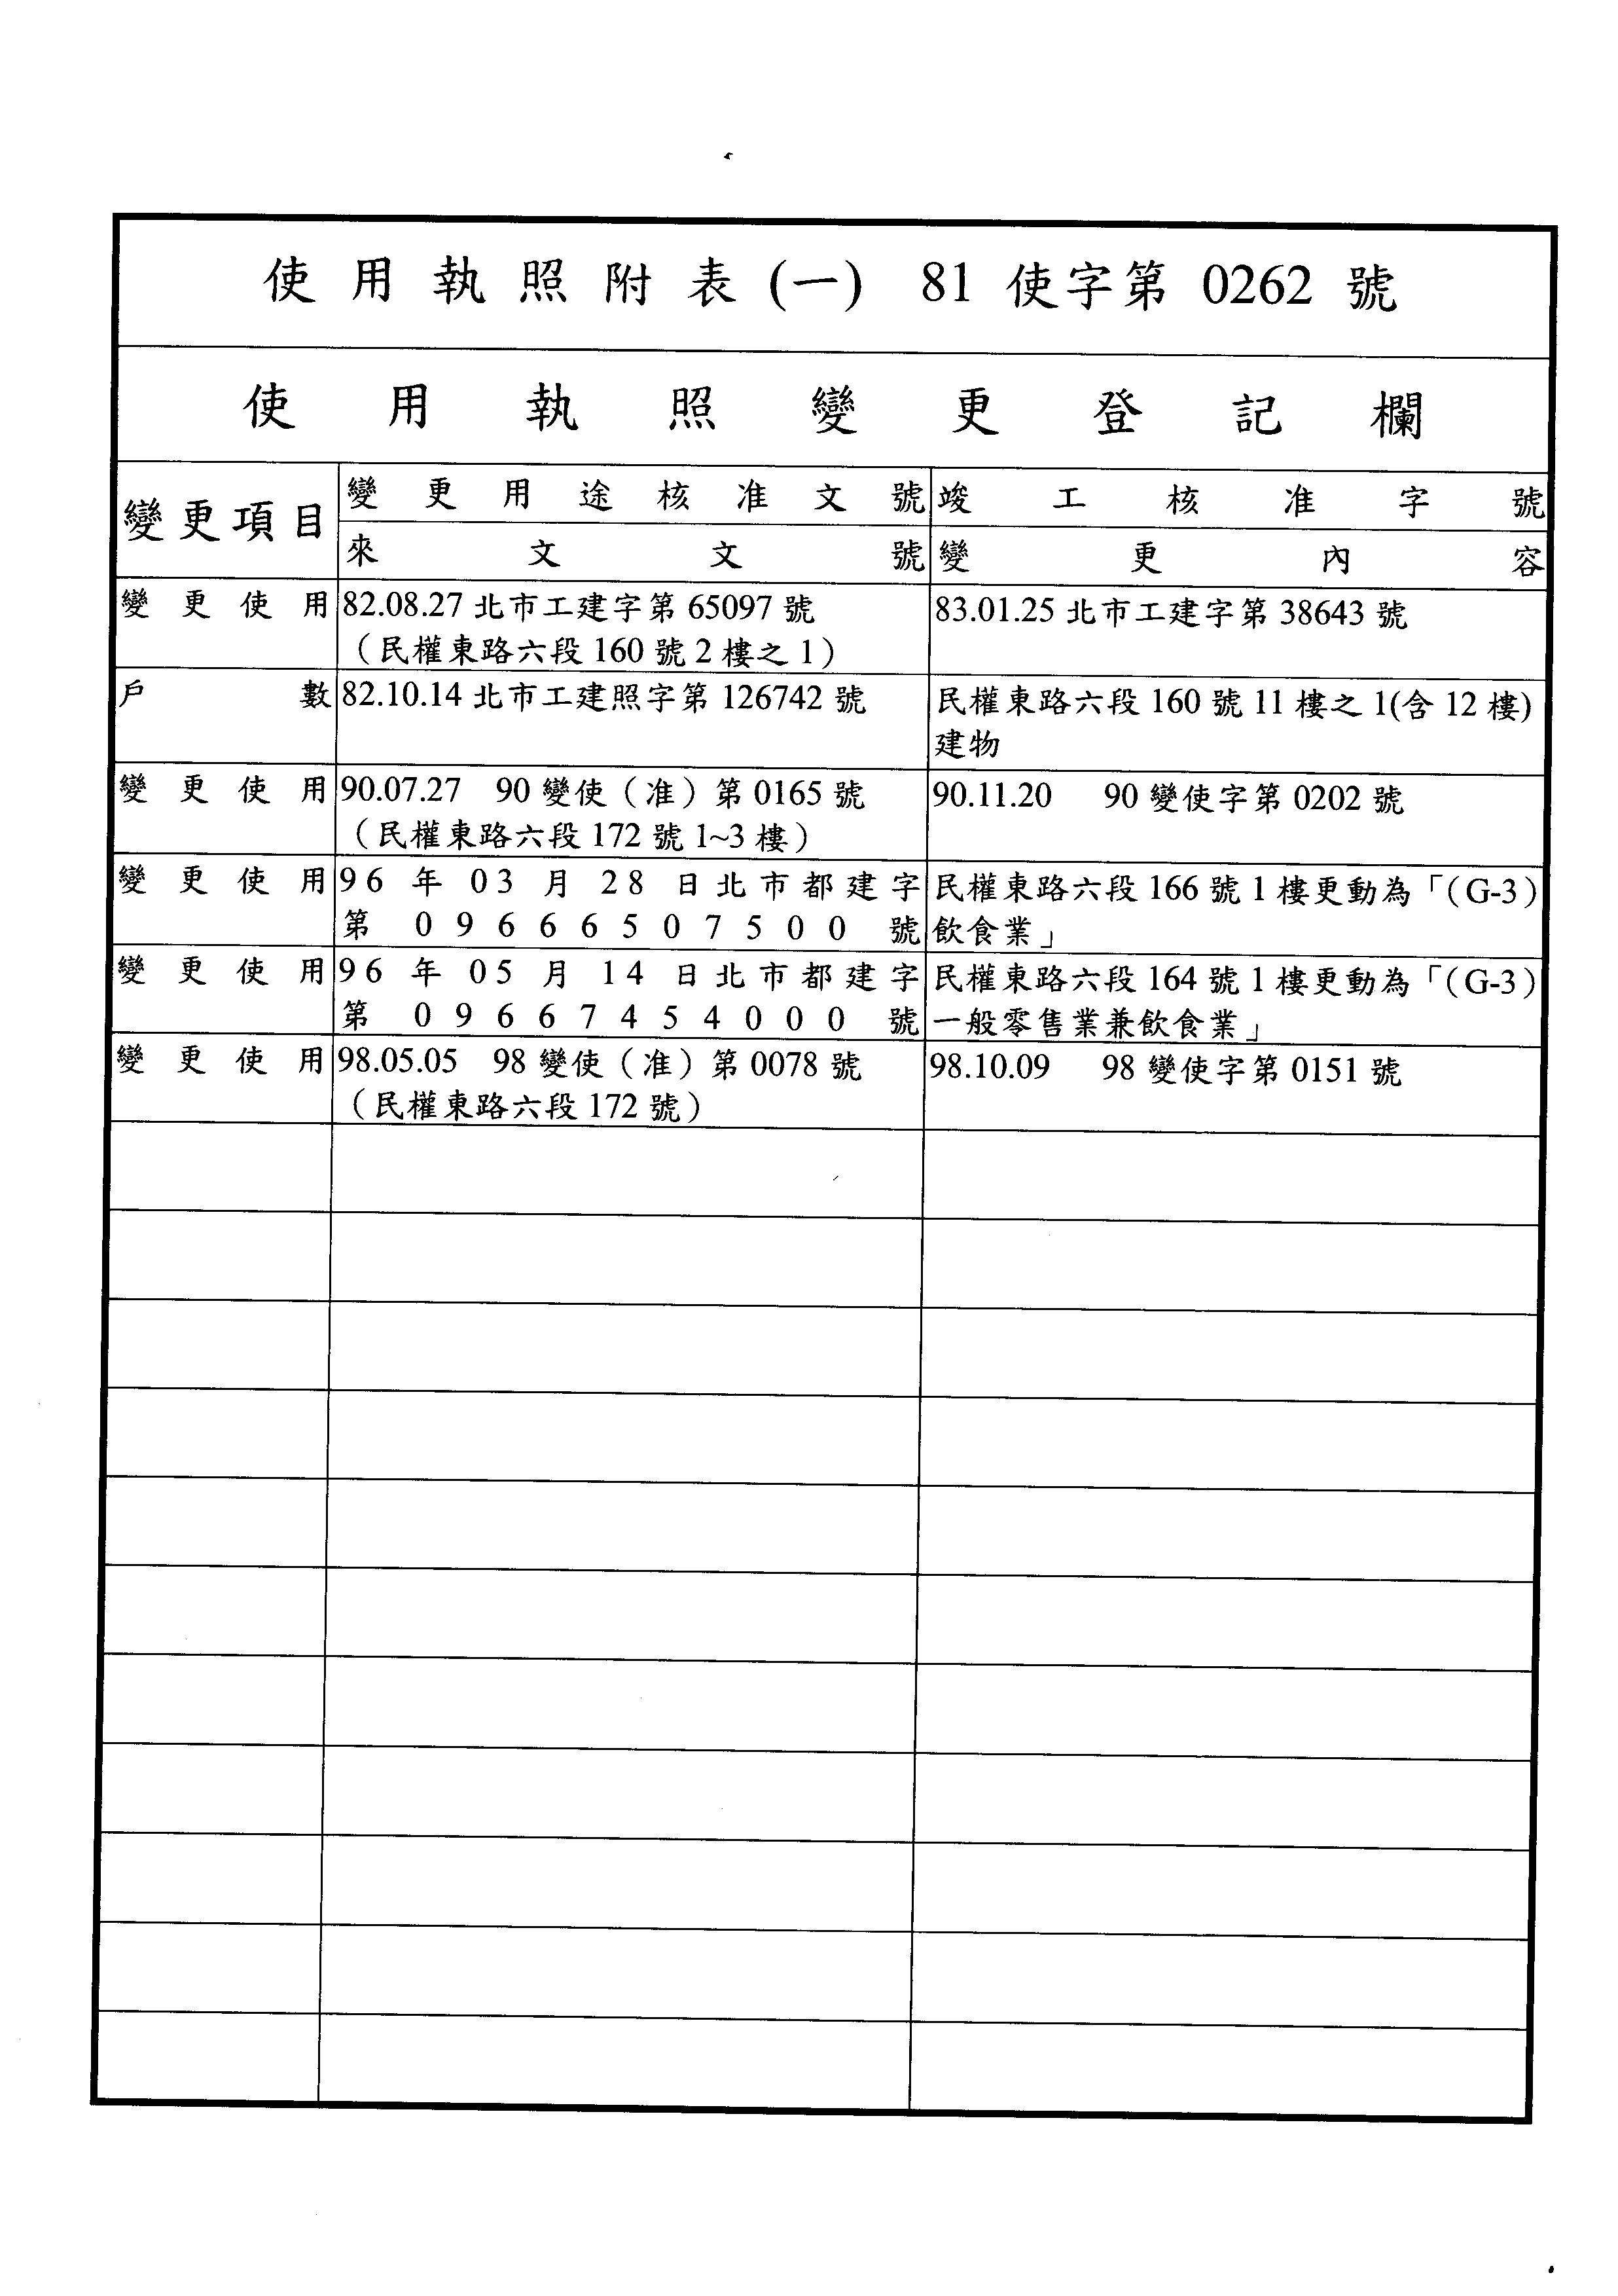 使用執照附表(一) 81 使字第 0262 號
使用執照變更登記欄
變更項目
變更用途核准文號
竣工核准字號
來文文號
變更內容
變更使用
82.08.27 北市工建字第 65097 號
（民權東路六段 160 號 2 樓之 1）
83.01.25 北市工建字第 38643 號
戶數
82.10.14 北市工建照字第 126742 號
民權東路六段 160 號 11 樓之 1(含 12 樓)
建物
變更使用
90.07.27 90 變使（准）第 0165 號
（民權東路六段 172 號 1~3 樓）
90.11.20 90 變使字第 0202 號
變更使用
96 年 03 月 28 日北市都建字
第 09666507500 號
民權東路六段 166 號 1 樓更動為「（G-3）
飲食業」
變更使用
96 年 05 月 14 日北市都建字
第 09667454000 號
民權東路六段 164 號 1 樓更動為「（G-3）
一般零售業兼飲食業」
變更使用
98.05.05 98 變使（准）第 0078 號
（民權東路六段 172 號）
98.10.09 98 變使字第 0151 號